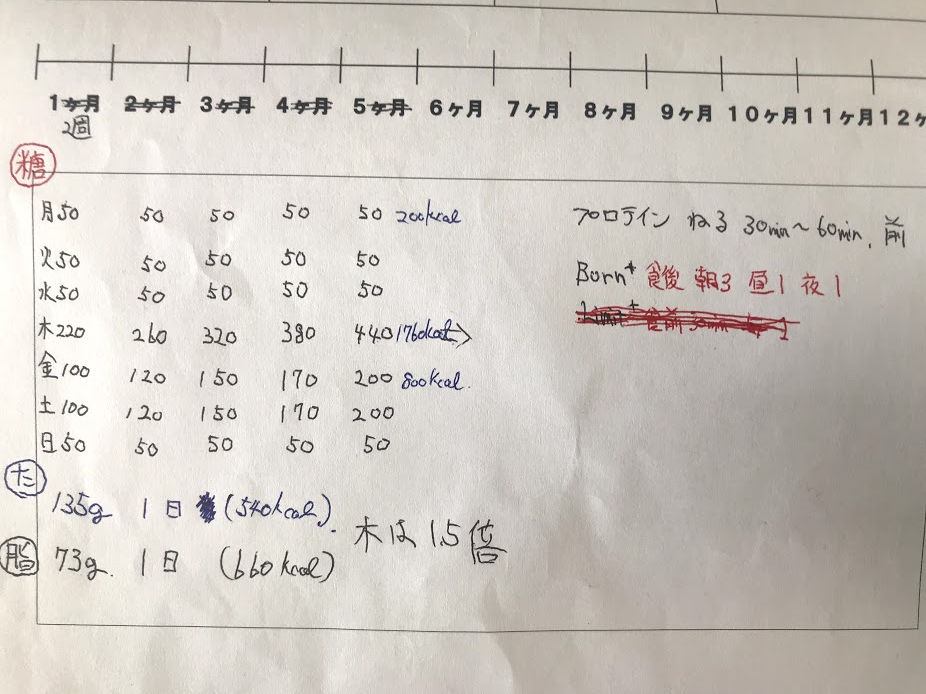 1ヶ月 2ヶ月 3ヶ月 4ヶ月 5ヶ月 6ヶ月 7ヶ月 8ヶ月 9ヶ月 10ヶ月 11ヶ月 12ヶ
2週
糖
月50 50 50 50 50 200kcal
火50 50 50 50 50
水50 50 50 50 50
木220 260 320 380 440 1760kcal
金100 120 150 170 200 800kcal.
土100 120 150 170 200
日50 50 50 50 50
プロテイン ねる 30min〜60min, 前
Born+ 食後 朝3 昼1 夜1
た
135g 1日 (540kcal).
脂 73g. 1日 (660kcal)
木は 1.5倍